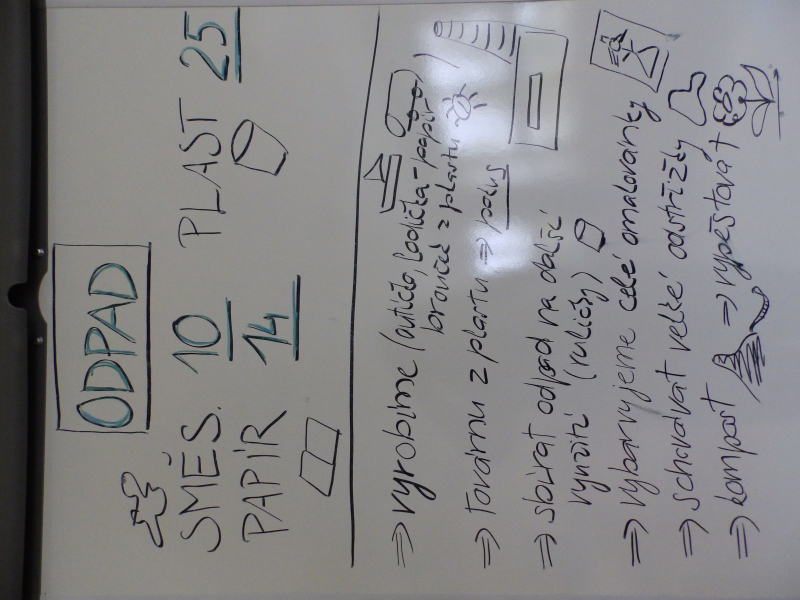 ODPAD
SMĚS. 10 PLAST 25
PAPÍR 14
⇒ vyrobíme (autíčko, lodička - papír)
brouček z plastu
⇒ Továrnu z plastu ⇒ pokus
⇒ sbírat odpad na další
využití (ruličky)
⇒ vybarvujeme celé omalovánky
⇒ schovávat velké odstřižky
⇒ kompost ⇒ vypěstovat